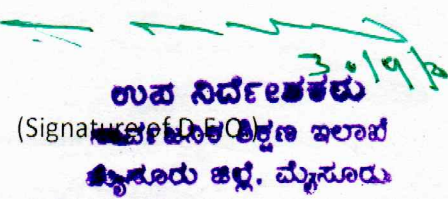 ಉಪ ನಿರ್ದೇಶಕರು
(Signature of D.E.O.)
ಸಾರ್ವಜನಿಕ ಶಿಕ್ಷಣ ಇಲಾಖೆ
ಮೈಸೂರು ಜಿಲ್ಲೆ, ಮೈಸೂರು